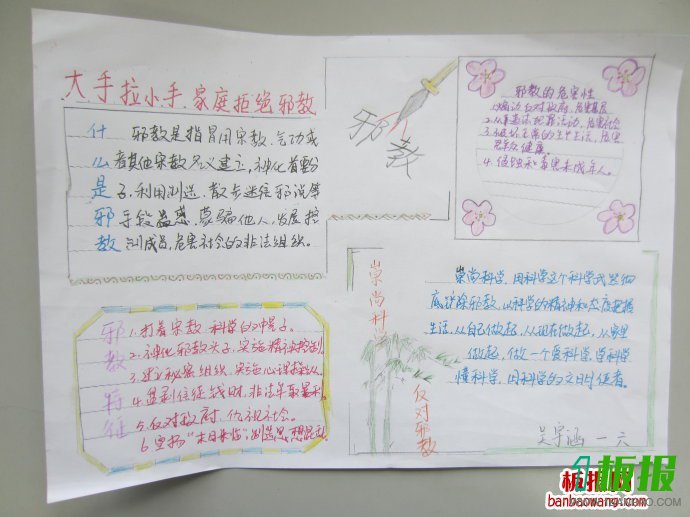 大手拉小手 家庭拒绝邪教
什么是邪教
邪教是指冒用宗教、气功或
者其他宗教名义建立,神化首要分
子,利用制造、散步迷信邪说等
手段蛊惑、蒙骗他人,发展控
制成员,危害社会的非法组织。
邪教
邪教的危害性
1.煽动反对政府,危害基层
2.从事违法犯罪活动,危害社会
3.破坏正常的生产生活,危害
群众健康。
4.侵蚀和毒害未成年人。
邪教特征
1.打着宗教、科学的幌子。
2.神化邪教头子,实施精神控制。
3.建立秘密组织,实施心理操从。
4.盅刺信徒钱财,非法牟取暴利。
5.反对政府,仇视社会。
6.宣扬“末日来临”,制造思想混乱
崇尚科学
反对邪教
崇尚科学,用科学这个科学武器彻
底铲除邪教,以科学的精神和态度把握
生活,从自己做起,从现在做起,从家里
做起,做一个爱科学,学科学
懂科学,用科学的文明使者。
一六
板报网
板报
banbaowang.com